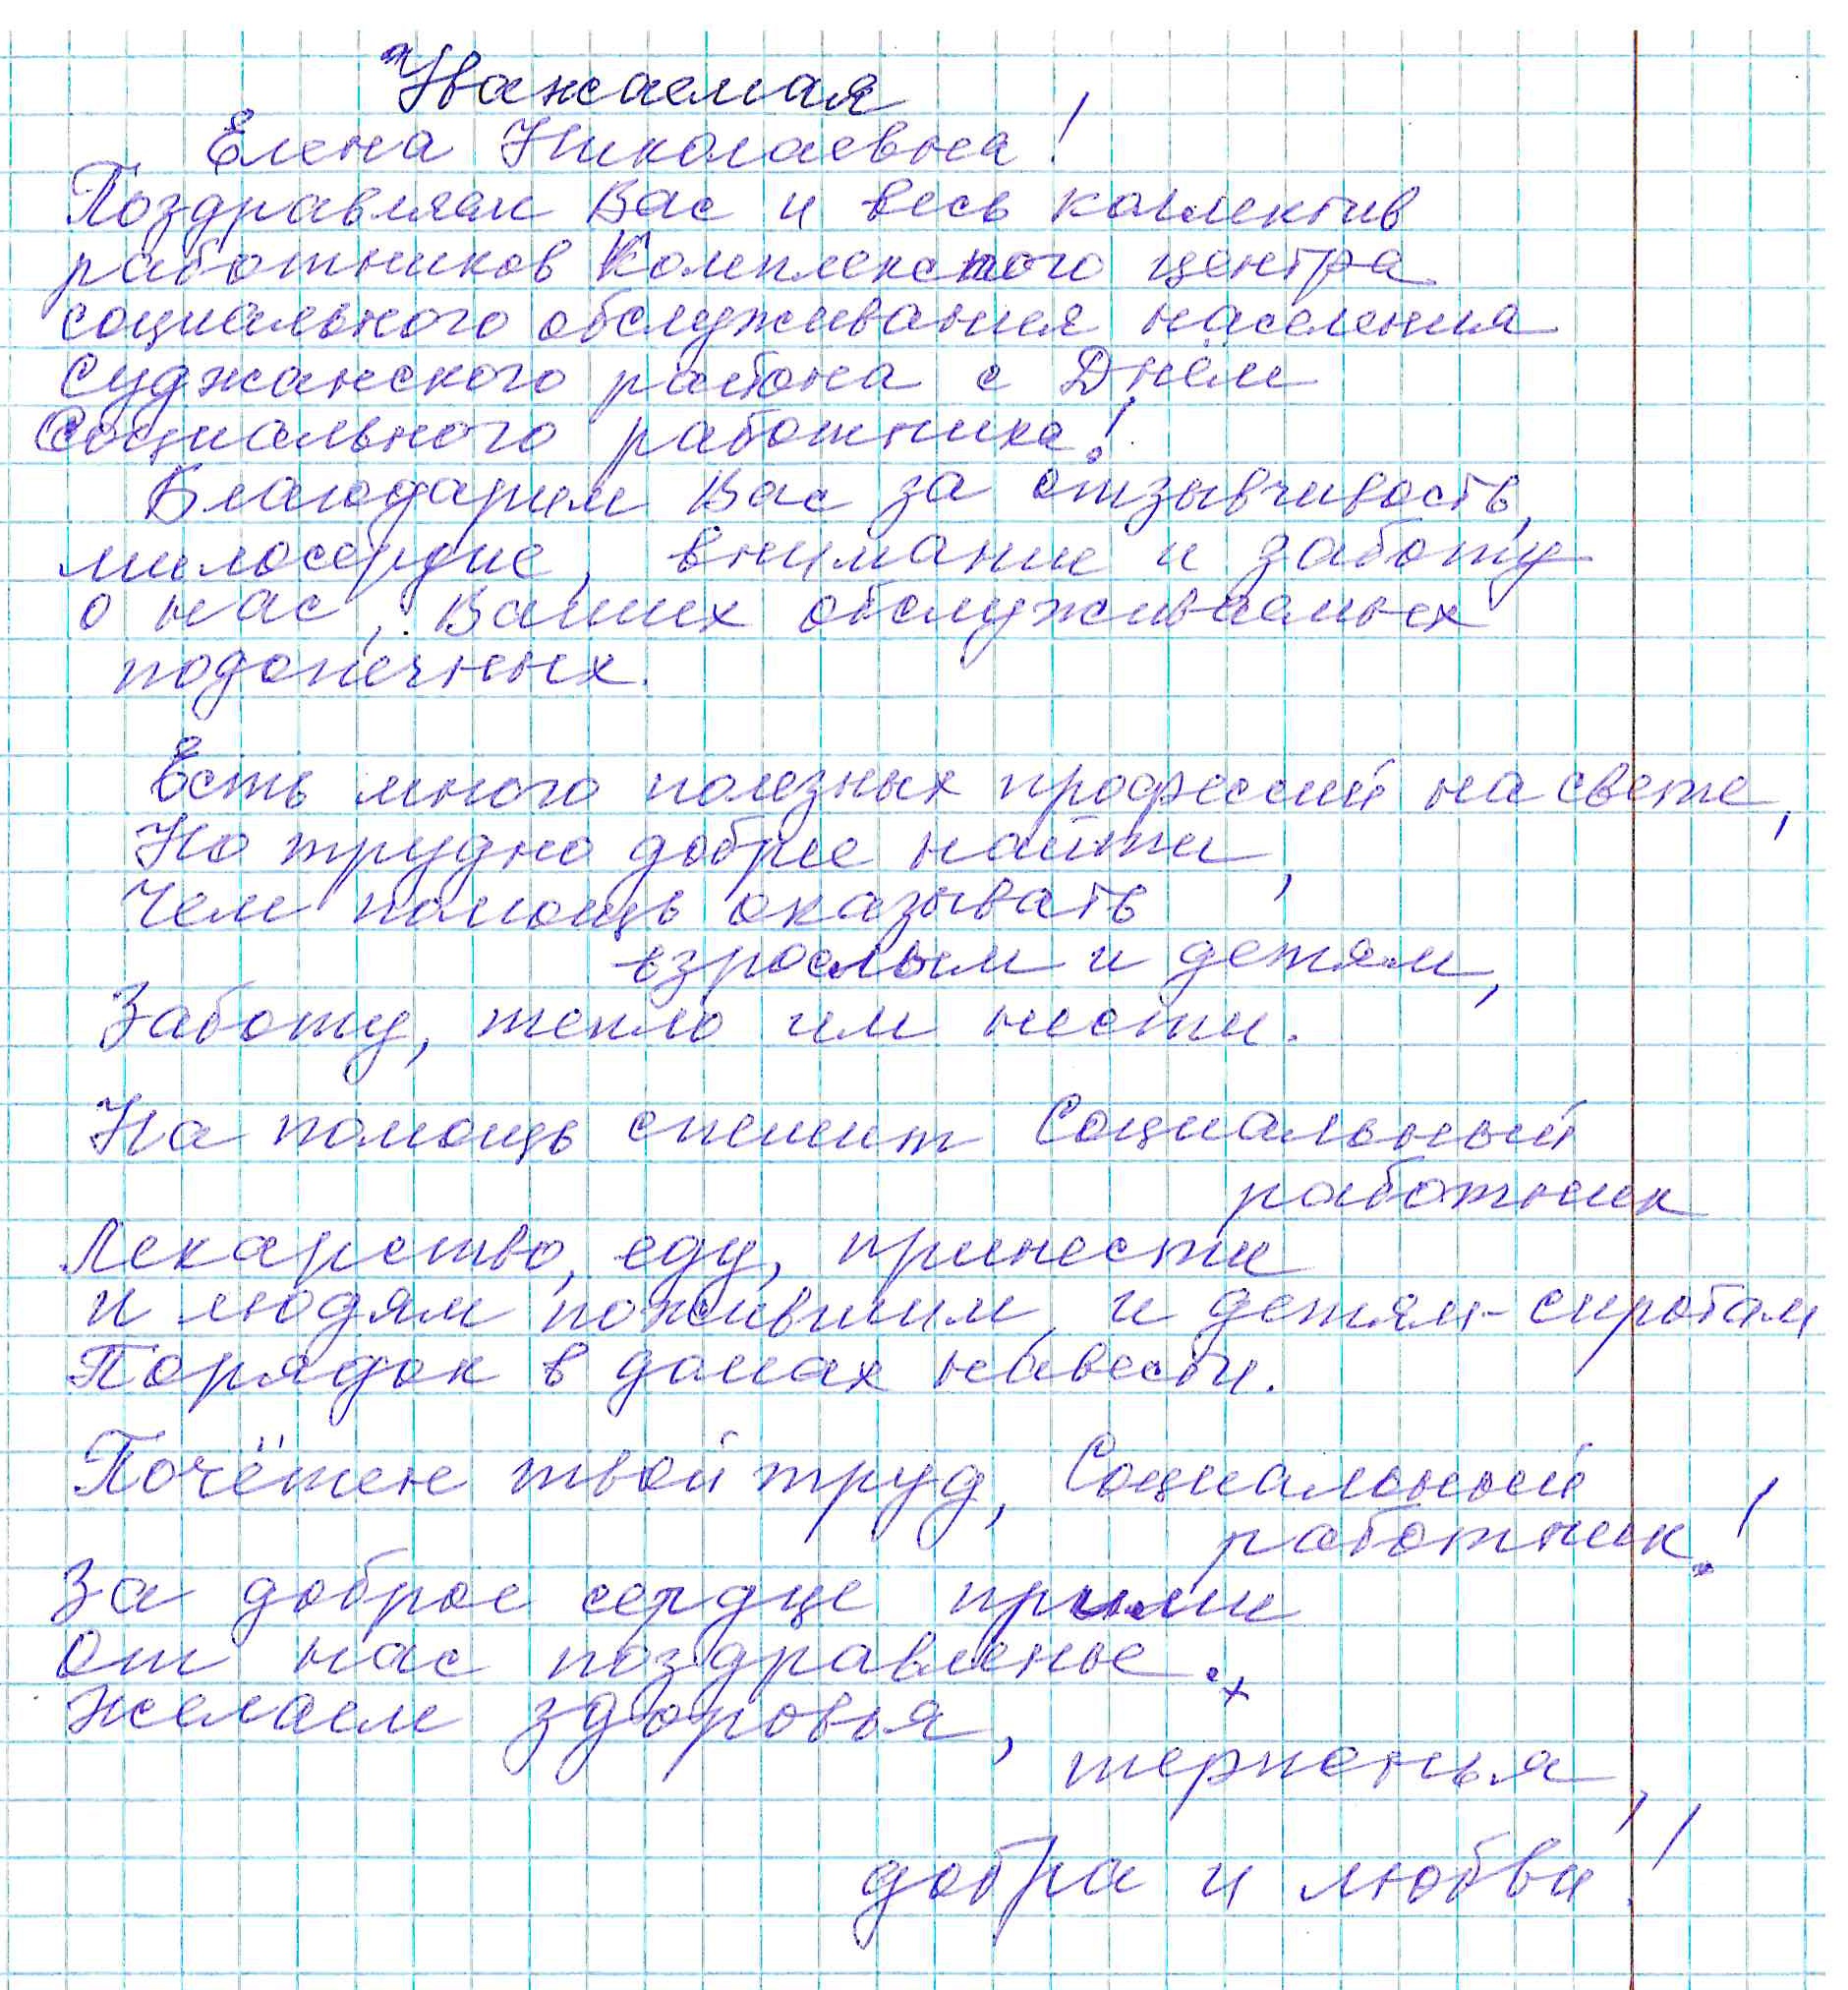 Уважаемая
Елена Николаевна!
Поздравляем Вас и весь коллектив
работников Комплексного центра
социального обслуживания населения
Суджанского района с Днём
Социального работника!
Благодарим Вас за отзывчивость,
милосердие, внимание и заботу
о нас, Ваших обслуживаемых
подопечных.
Есть много полезных профессий на свете,
Но трудно добрее найти,
Чем помощь оказывать
взрослым и детям,
Заботу, тепло им нести.
На помощь спешит Социальный
работник
Лекарство, еду, принести
и людям пожившим, и детям-сиротам
Порядок в домах навести.
Почётен твой труд, Социальный
работник!
За доброе сердце прими
от нас поздравленье.
Желаем здоровья,
терпенья,
добра и любви!